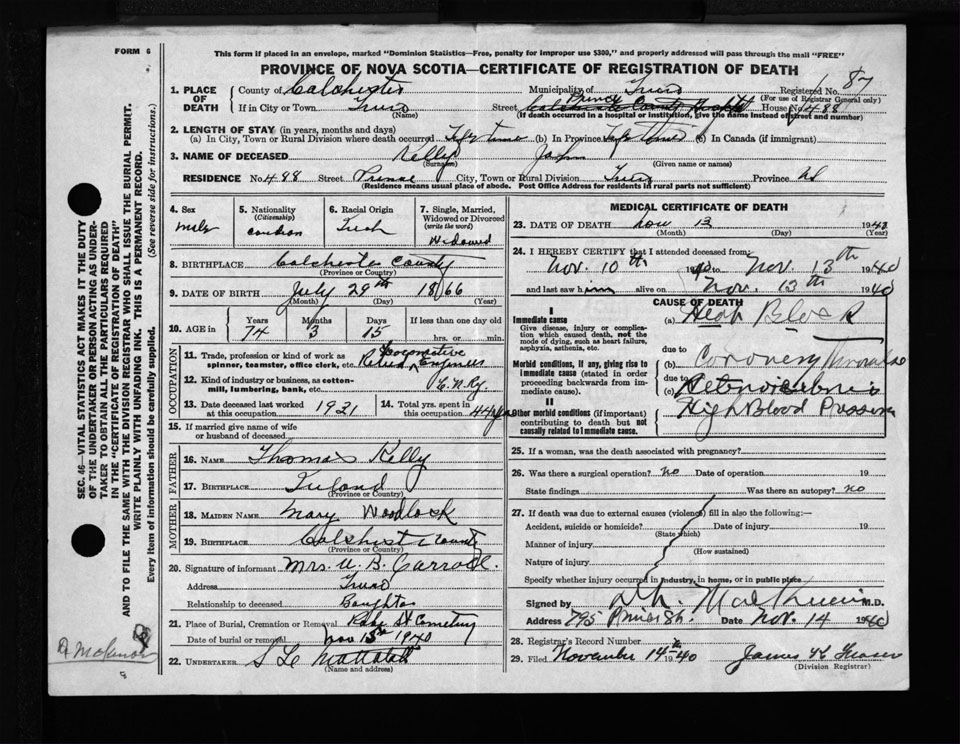 FORM 6
This form if placed in an envelope, marked "Dominion Statistics—Free, penalty for improper use $300," and properly addressed will pass through the mail "FREE"
PROVINCE OF NOVA SCOTIA—CERTIFICATE OF REGISTRATION OF DEATH
SEC. 46—VITAL STATISTICS ACT MAKES IT THE DUTY
OF THE UNDERTAKER OR PERSON ACTING AS UNDER-
TAKER TO OBTAIN ALL THE PARTICULARS REQUIRED
IN THE "CERTIFICATE OF REGISTRATION OF DEATH"
AND TO FILE THE SAME WITH THE DIVISION REGISTRAR WHO SHALL ISSUE THE BURIAL PERMIT.
WRITE PLAINLY WITH UNFADING INK. THIS IS A PERMANENT RECORD.
Every item of information should be carefully supplied. (See reverse side for instructions.)
1. PLACE OF DEATH
County of Colchester Municipality of Truro Registered No. 87
(For use of Registrar General only)
If in City or Town Truro Street Prince House No. 488
(Name) (If death occurred in a hospital or institution, give the name instead of street and number)
2. LENGTH OF STAY (in years, months and days)
(a) In City, Town or Rural Division where death occurred Life time (b) In Province Life Time (c) In Canada (if immigrant)
3. NAME OF DECEASED Kelly John
(Surname) (Given name or names)
RESIDENCE No. 488 Street Prince City, Town or Rural Division Truro Province NS
(Residence means usual place of abode. Post Office Address for residents in rural parts not sufficient)
4. Sex Male
5. Nationality (Citizenship) Canadian
6. Racial Origin Irish
7. Single, Married, Widowed or Divorced (write the word) Widowed
8. BIRTHPLACE Colchester County
(Province or Country)
9. DATE OF BIRTH July 29th 1866
(Month) (Day) (Year)
10. AGE in Years Months Days If less than one day old
74 3 15 hrs. or min.
OCCUPATION
11. Trade, profession or kind of work as spinner, teamster, office clerk, etc. Retired Locomotive Engineer
12. Kind of industry or business, as cotton-mill, lumbering, bank, etc. C.N.Ry.
13. Date deceased last worked at this occupation 1921
14. Total yrs. spent in this occupation 44 yrs
15. If married give name of wife or husband of deceased
FATHER
16. NAME Thomas Kelly
17. BIRTHPLACE Ireland
(Province or Country)
MOTHER
18. MAIDEN NAME Mary Woodlock
19. BIRTHPLACE Colchester County
(Province or Country)
20. Signature of informant Mrs. W. B. Carroll
Address Truro
Relationship to deceased Daughter
21. Place of Burial, Cremation or Removal Robie St Cemetery
Date of burial or removal Nov 15th 1940
22. UNDERTAKER S Le Mattatall
MEDICAL CERTIFICATE OF DEATH
23. DATE OF DEATH Nov 13 1940
(Month) (Day) (Year)
24. I HEREBY CERTIFY that I attended deceased from
Nov. 10th 1940 to Nov. 13th 1940
and last saw him alive on Nov. 13th 1940
CAUSE OF DEATH
I
Immediate cause
Give disease, injury or complication which caused death, not the mode of dying, such as heart failure, asphyxia, asthenia, etc.
(a) Heart Block
due to
Morbid conditions, if any, giving rise to immediate cause (stated in order proceeding backwards from immediate).
(b) Coronary Thrombosis
due to
(c) Arteriosclerosis
II
Other morbid conditions (if important) contributing to death but not causally related to immediate cause.
High Blood Pressure
25. If a woman, was the death associated with pregnancy?
26. Was there a surgical operation? no Date of operation 19
State findings Was there an autopsy? no
27. If death was due to external causes (violence) fill in also the following:—
Accident, suicide or homicide? Date of injury 19
(State which)
Manner of injury
(How sustained)
Nature of injury
Specify whether injury occurred in industry, in home, or in public place
Signed by M.D.
Address 795 Prince St. Date Nov. 14 1940
28. Registrar's Record Number
29. Filed November 14th 1940 James H Fraser
(Division Registrar)